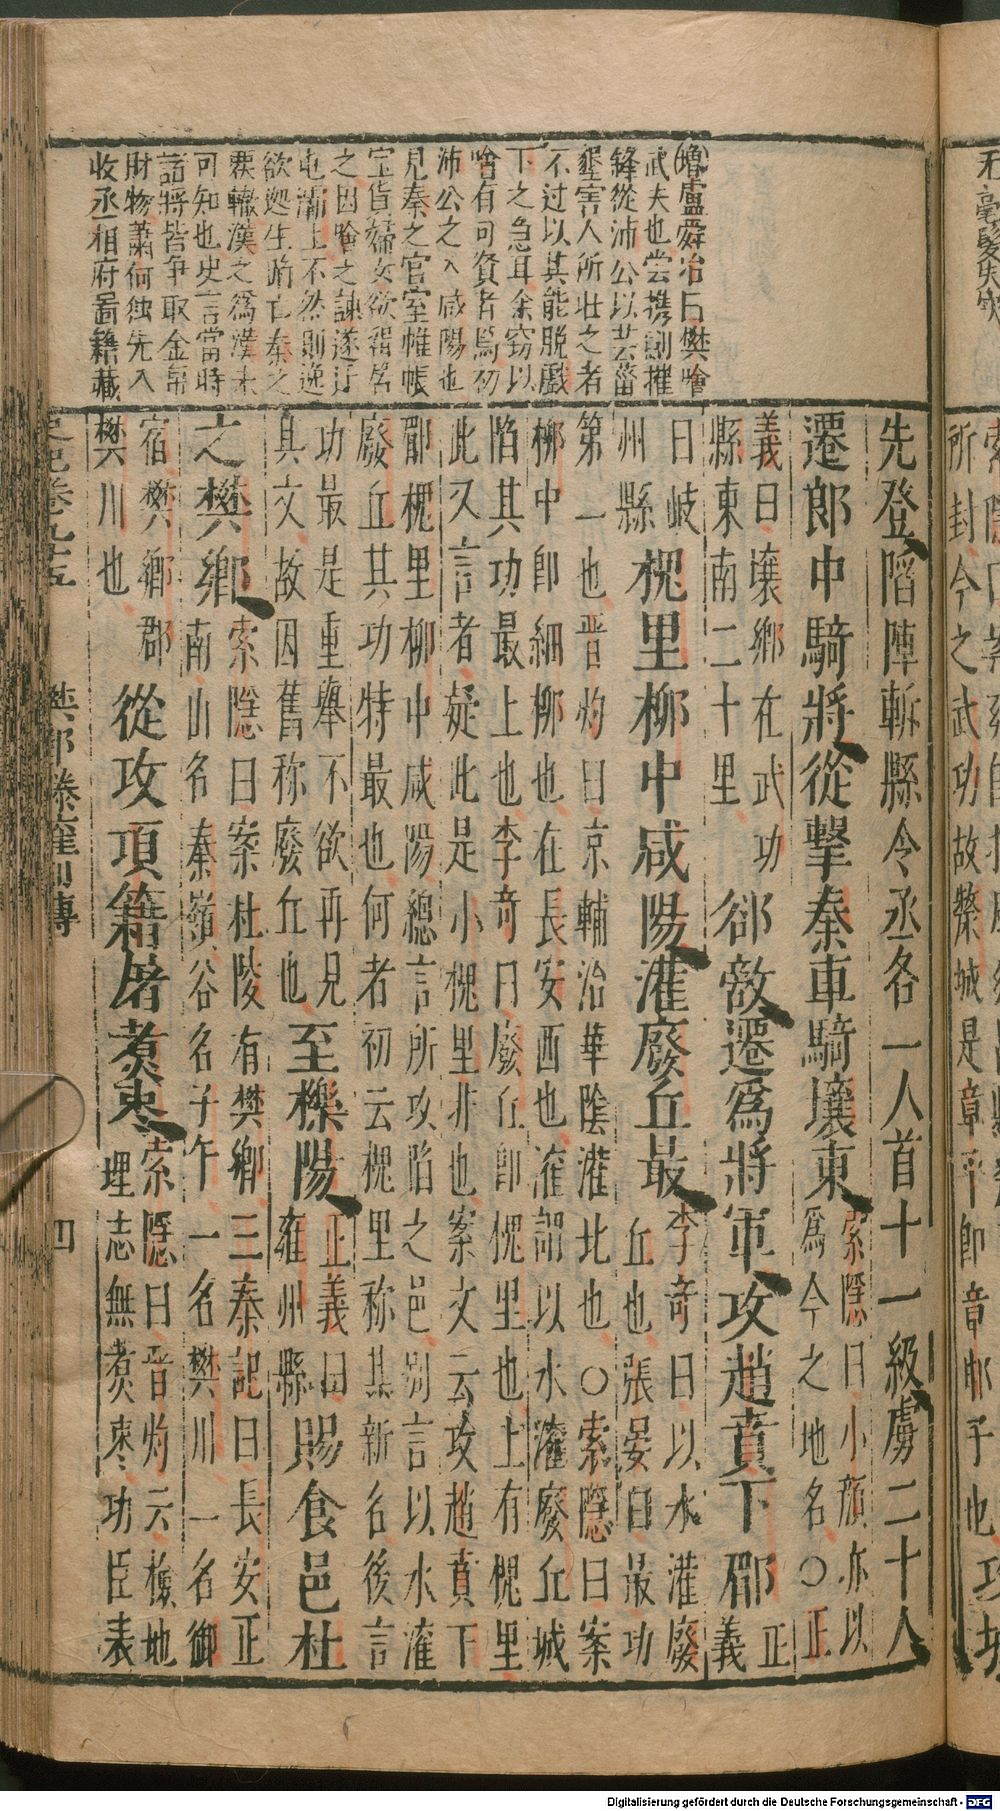 武夫也嘗携劍摧
鋒從沛公以芸菑
墾害人所壯之者
不过以其能脫戲
下之急耳余窃以
噲有可資者焉初
沛公之入咸陽也
見秦之官室帷帳
宝貨婦女欲留居
之因噲之諫遂迁
屯灞上不然則逸
欲迦生蹈亡秦之
可知也史言當時
諸將皆争取金帛
財物蕭何独先入
收丞相府啚籍藏
先登陷陣斬縣令丞各一人首十一級虜二十人
遷郎中騎將從擊秦車騎壤東索隱曰小顔亦以
爲今之地名○正
義曰壤鄉在武功
縣東南二十里郤敵遷爲將軍攻趙賁下郿正
義
曰岐
州縣槐里柳中咸陽灌廢丘最李奇曰以水灌廢
丘也張晏曰最功
第一也晉灼曰京輔治華陰灌北也○索隱曰案
柳中卽細柳也在長安西也灌謂以水灌廢丘城
陷其功最上也李奇曰廢丘卽槐里也上有槐里
此又言者疑此是小槐里非也案文云攻趙賁下
郿槐里柳中咸陽總言所攻陷之邑別言以水灌
廢丘其功特最也何者初云槐里称其新名後言
功最是重舉不欲再見
其文故因舊称廢丘也至櫟陽正義曰
雍州縣賜食邑杜
之樊鄉索隱曰案杜陵有樊鄉三秦記曰長安正
南山名秦嶺谷名子午一名樊川一名御
宿樊鄉郡
樊川也從攻項籍屠煑棗索隱曰晉灼云檢地
理志無煑棗功臣表
史記卷九十五
樊酈滕灌列傳
四
所封今之武功故斄城是章平卽章邯子也攻城
Digitalisierung gefördert durch die Deutsche Forschungsgemeinschaft - DFG